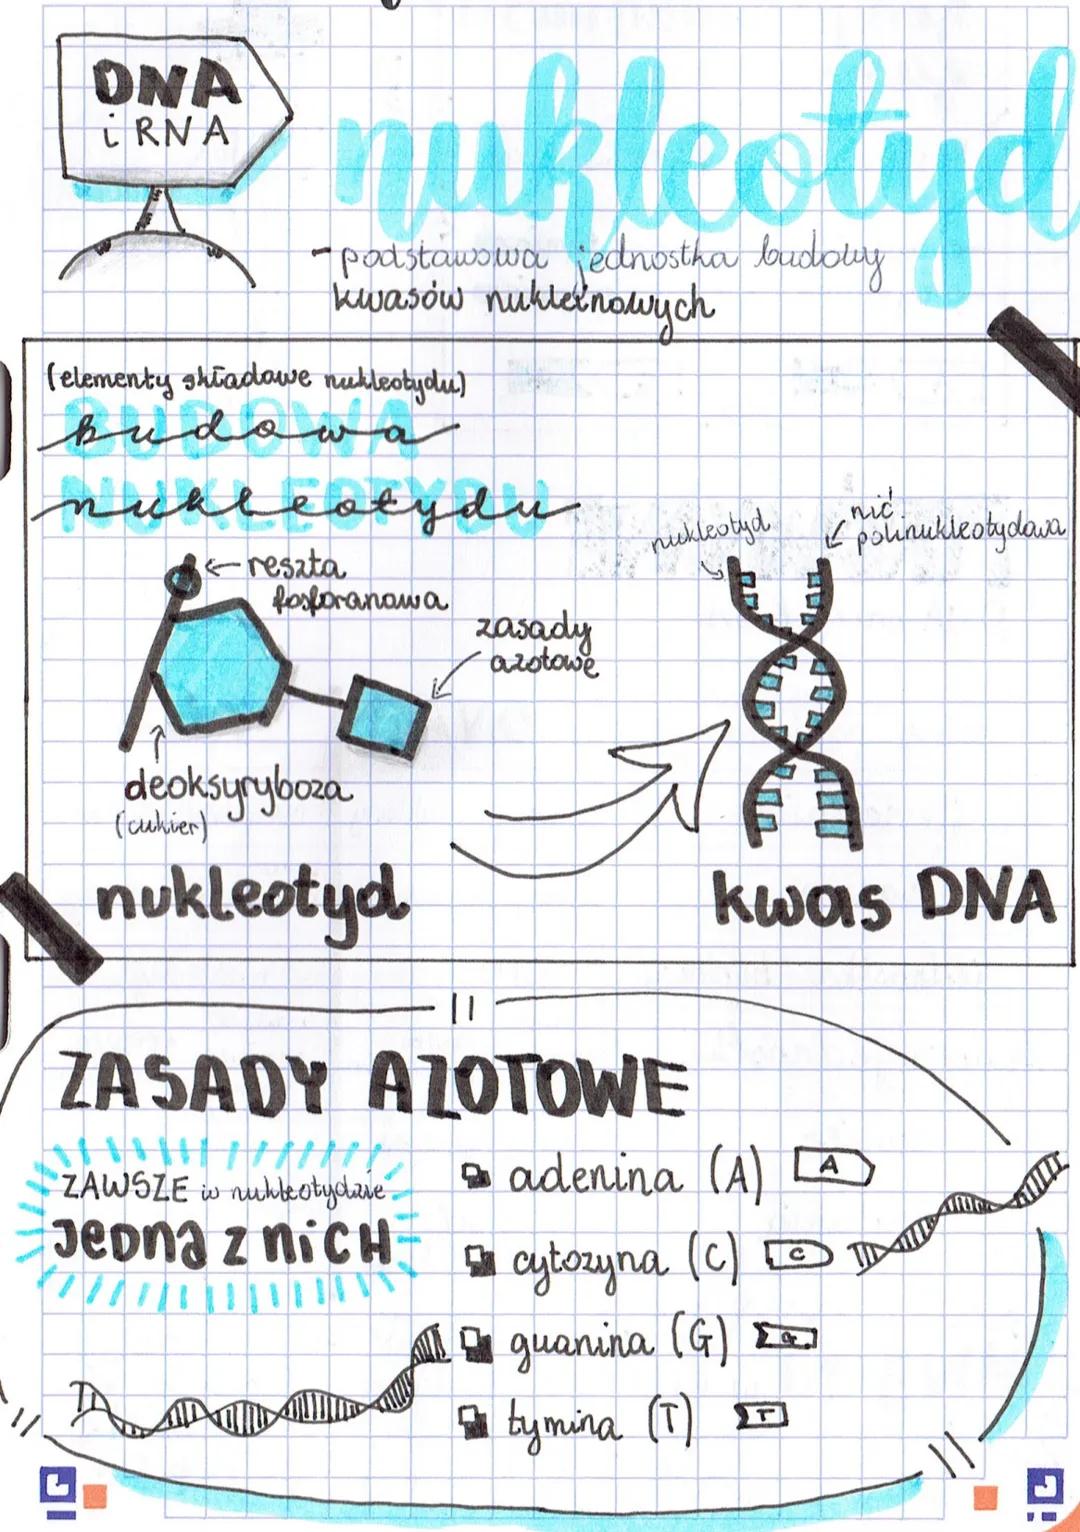 DNA
i RNA
nukleotyd
- podstawowa jednostka budowy
kwasów nukleinowych
(elementy składowe nukleotydu)
BUDOWA
budowa
NUKLEOTYDU
nukleotydu
reszta
fosforanowa
zasady
azotowe
deoksyryboza
(cukier)
nukleotyd
nukleotyd
nić
polinukleotydowa
kwas DNA
ZASADY AZOTOWE
ZAWSZE w nukleotydzie
JEDNA Z NICH
adenina (A) A
cytozyna (C) C
guanina (G) G
tymina (T) T